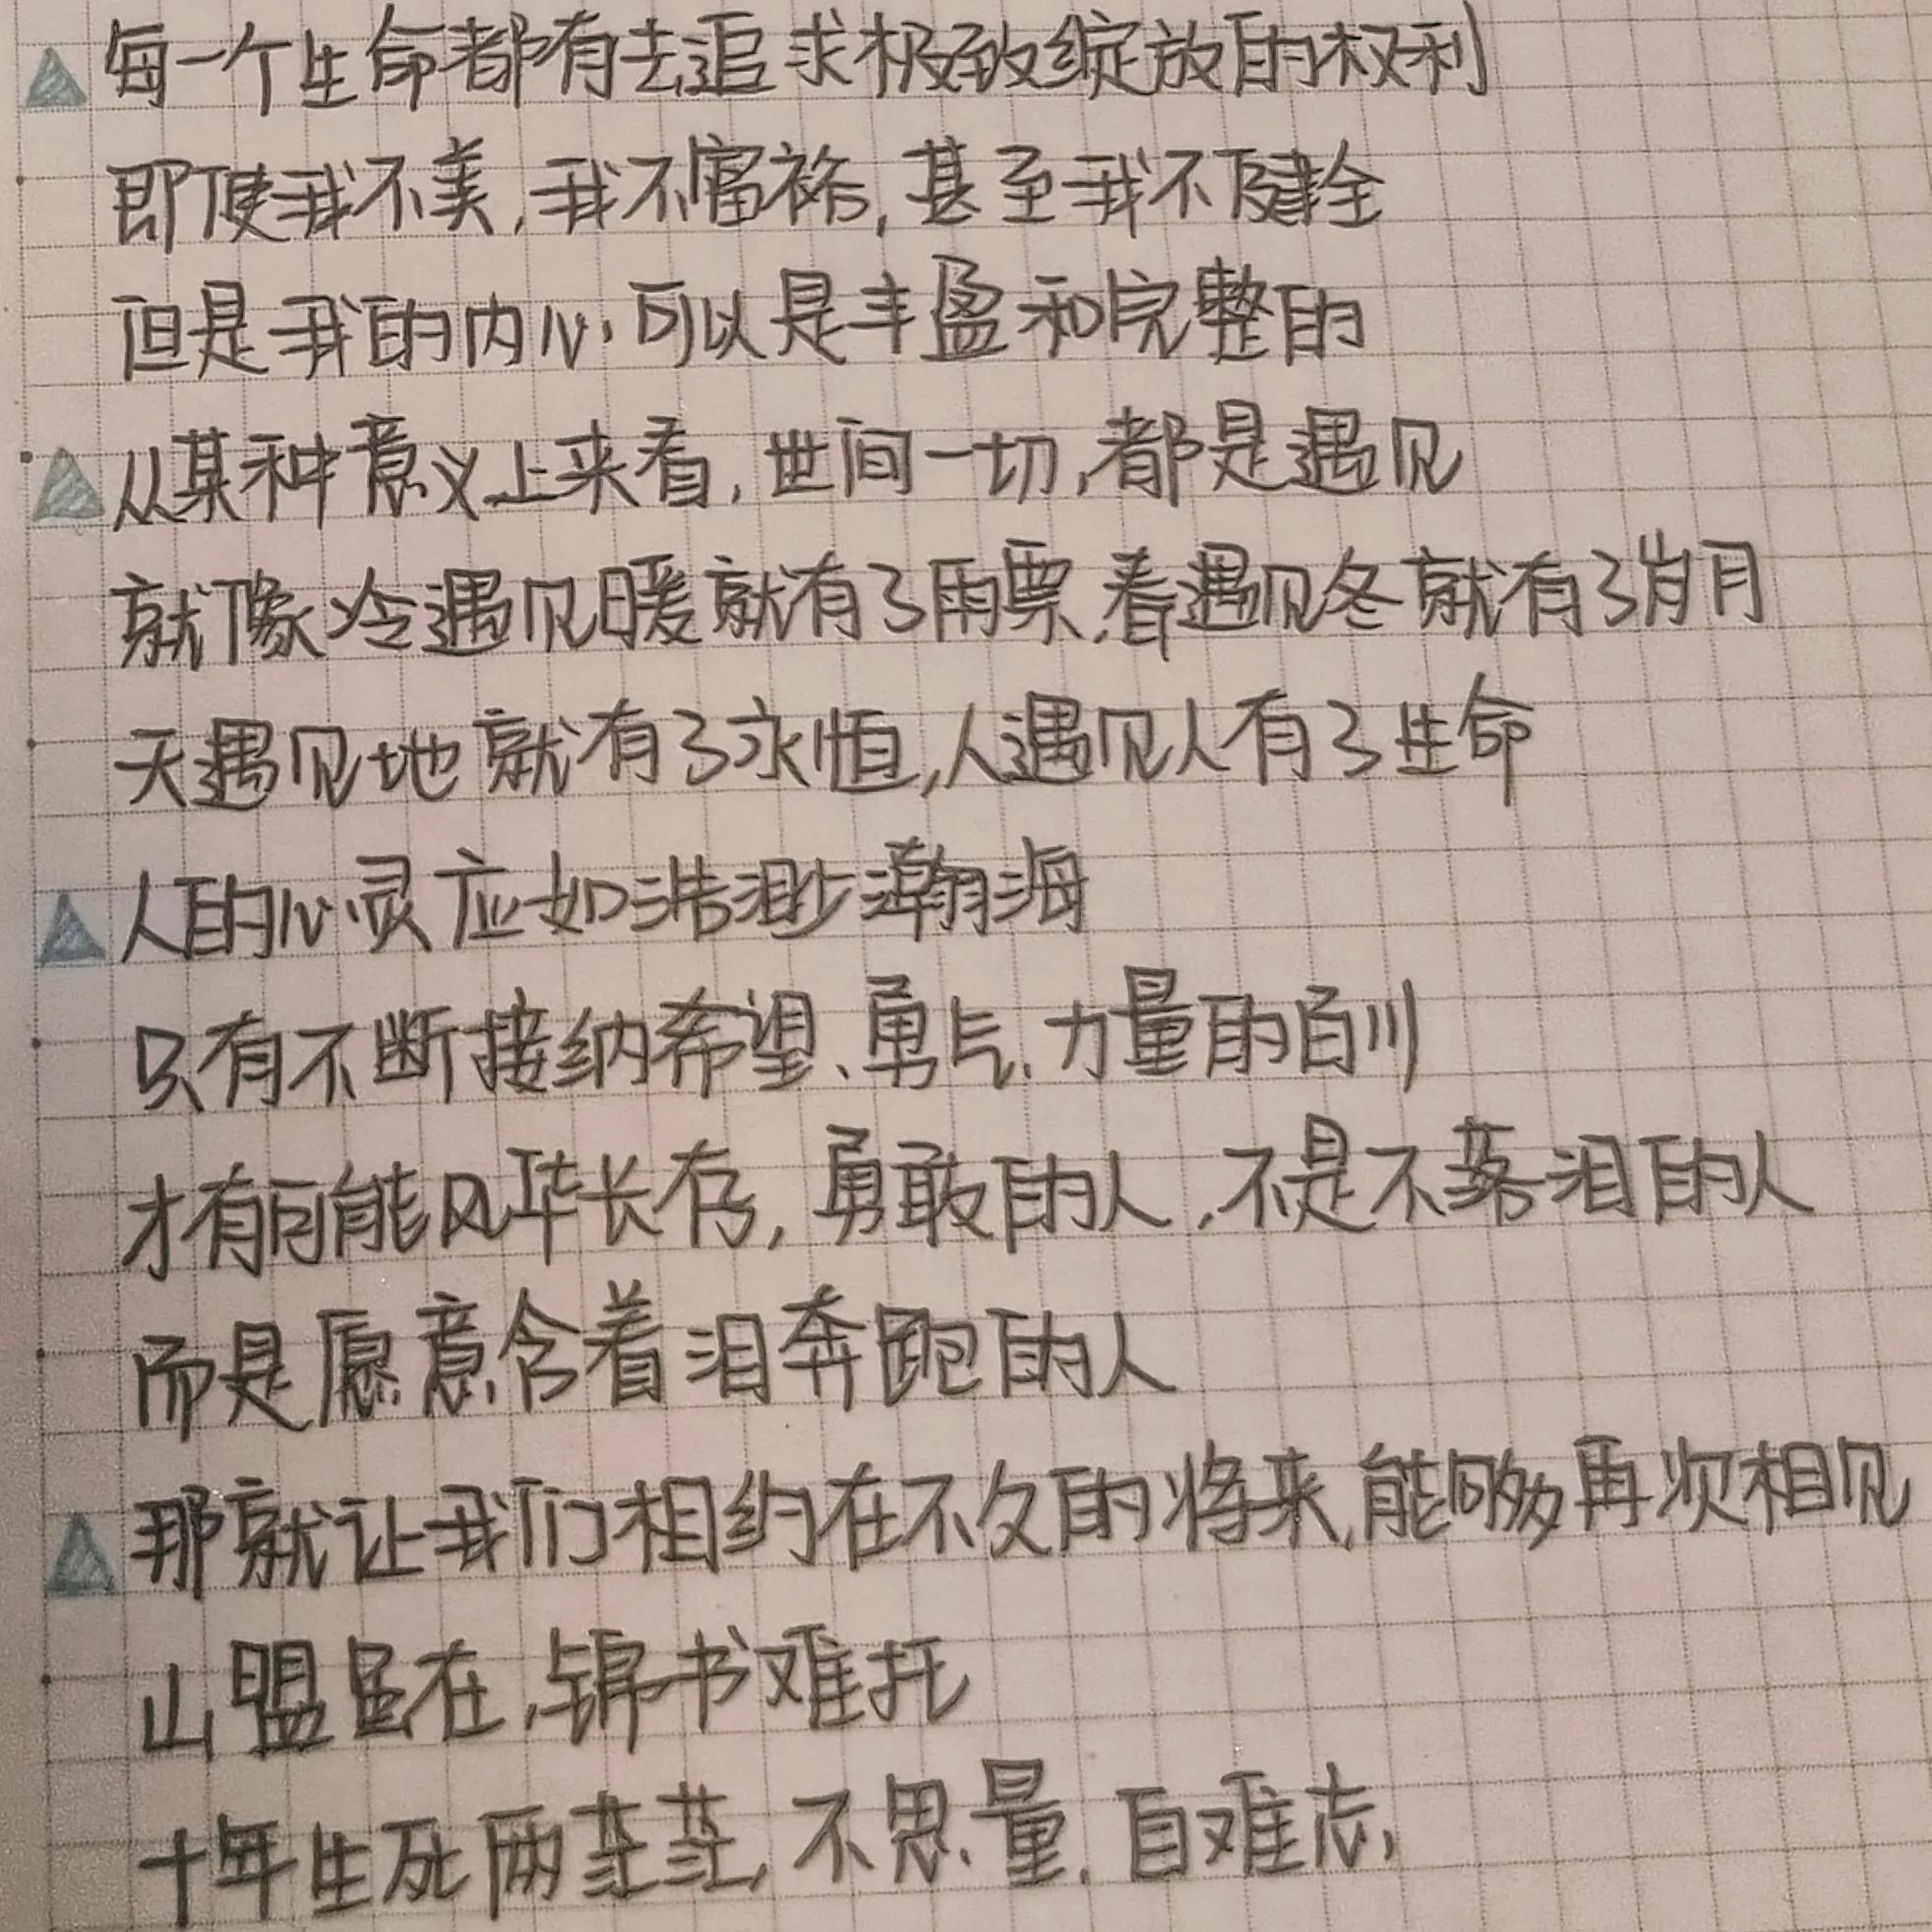 每一个生命都有去追求极致绽放的权利
即使我不美,我不富裕,甚至我不健全
但是我的内心可以是丰盈和完整的
从某种意义上来看,世间一切,都是遇见
就像冷遇见暖就有了雨票,春遇见冬就有了岁月
天遇见地就有了永恒,人遇见人有了生命
人的心灵应如浩渺瀚海
只有不断接纳希望、勇气、力量的百川
才有可能风华长存,勇敢的人,不是不落泪的人
而是愿意含着泪奔跑的人
那就让我们相约在不久的将来,能够再次相见
山盟虽在,锦书难托
十年生死两茫茫,不思量,自难忘,